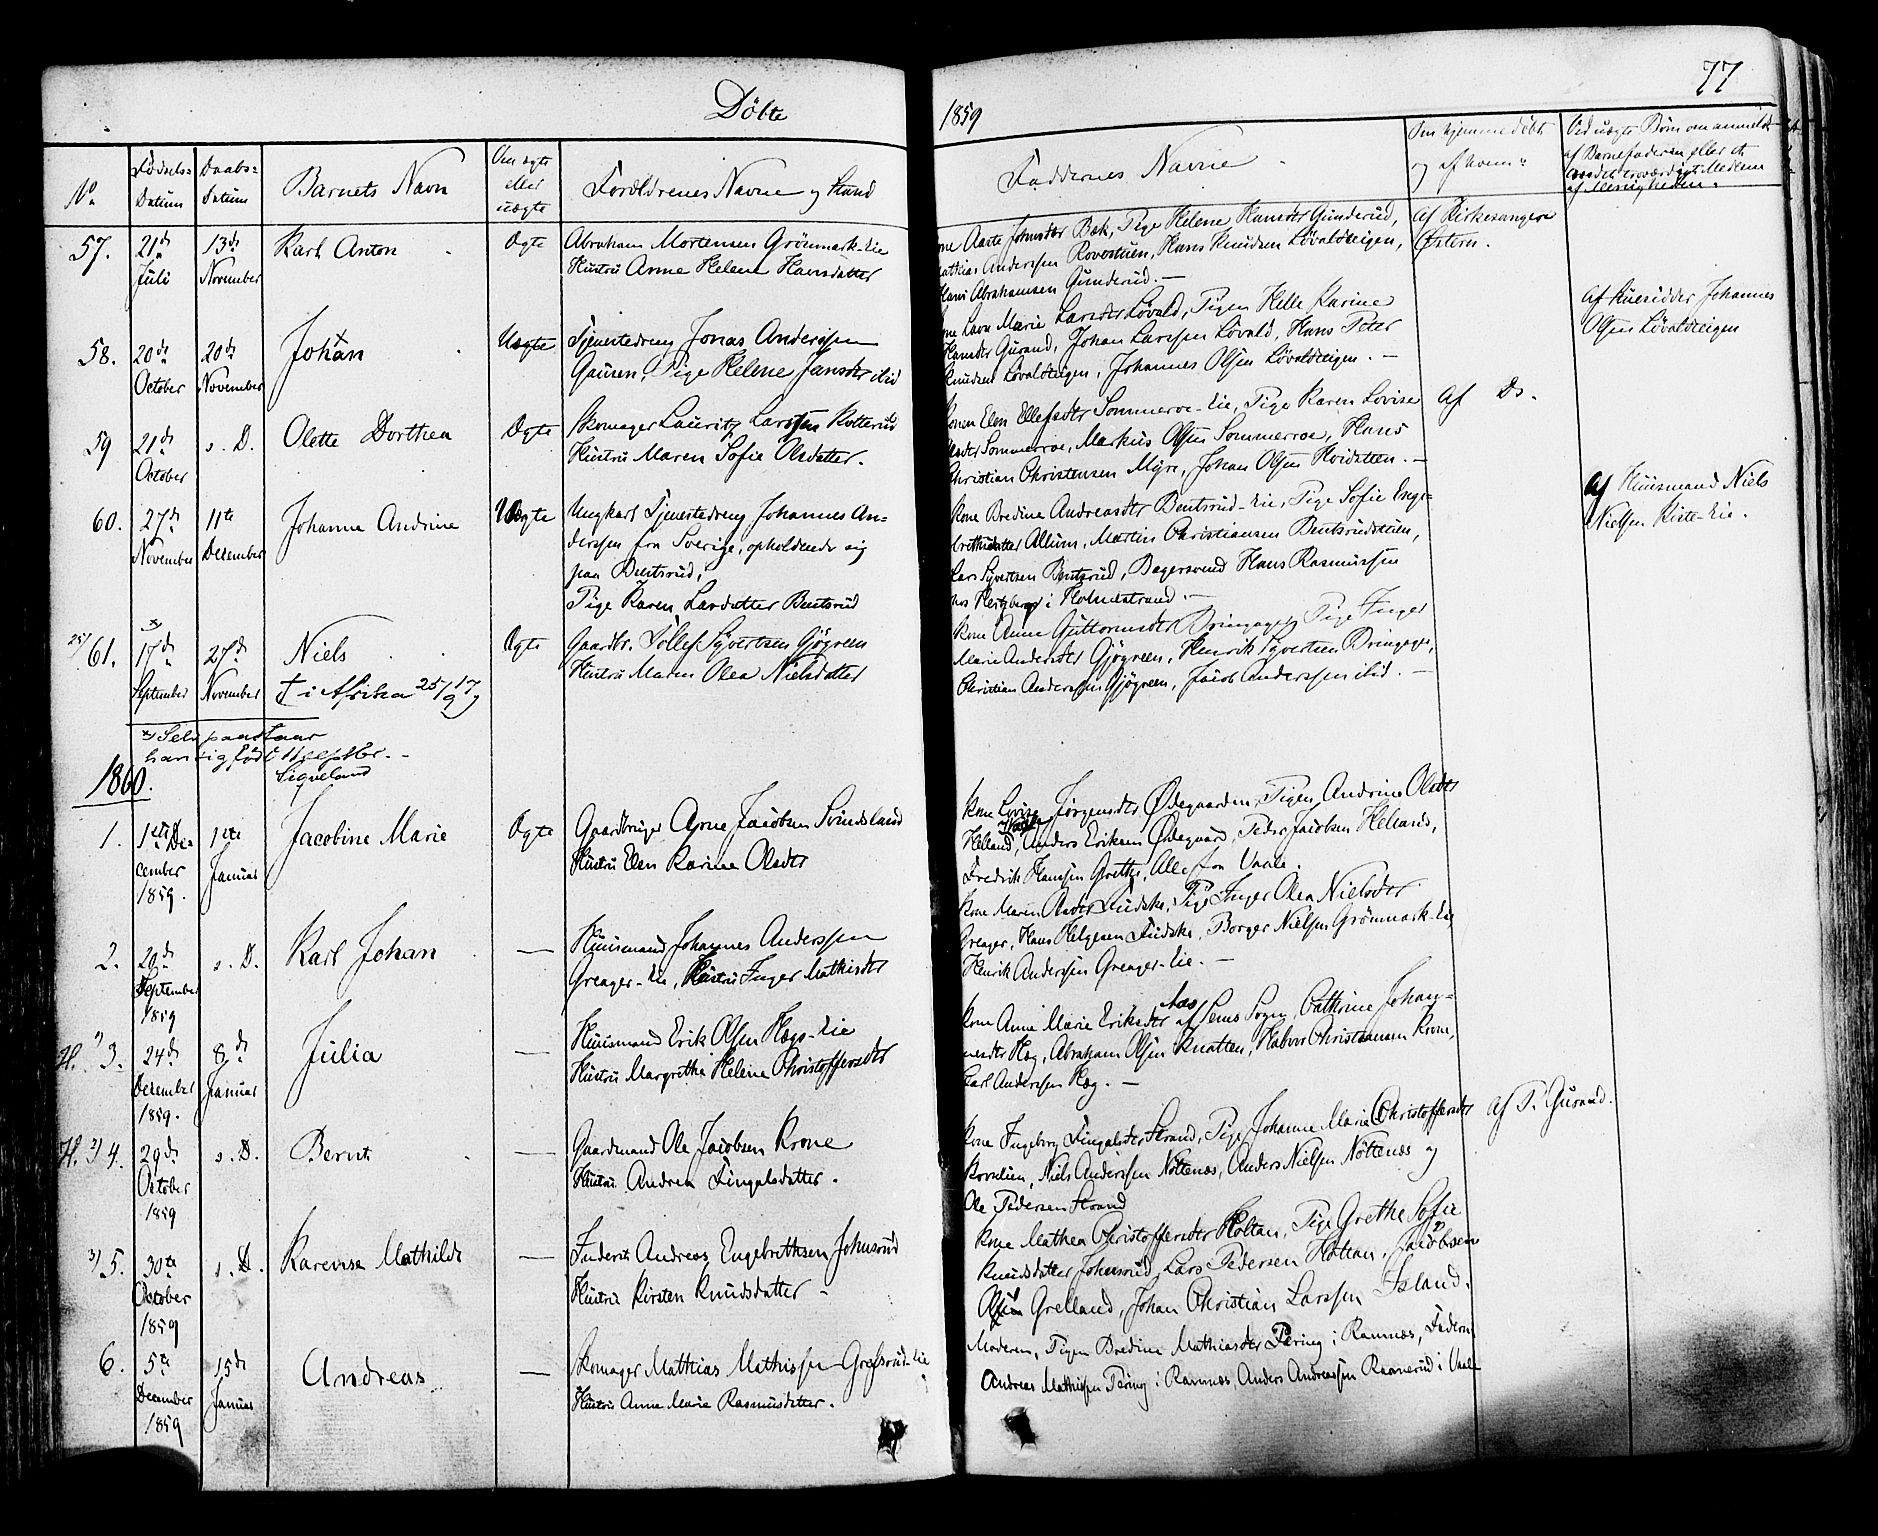 Döbte
1859
77
No
Fødsels-Datum
Daabs-Datum
Barnets Navn
Om ægte eller uægte
Forældrenes Navne og Stand
Faddernes Navne
Om hjemmedöbt og af hvem
Ved uægte Börn om anmeldt af Barnefaderen eller et andet troværdigt Medlem af Menigheden.
57.
21de Juli
13de November
Karl Anton
Ægte
Abraham Mortensen Grönmark-Eie
Hustru Anne Helene Hansdatter
Aaste Johnsdtr Bæk, Pige Helene Hansdtr Gunderud,
Mathias Anderssen Rovestuen, Hans Knudsen Lövaldteigen,
Hans Abrahamsen Gunderud. —
Af Kirkesanger Østern.
58.
20de October
20de November
Johan
Uægte
Tjenestedreng Jonas Anderssen
Gausen, Pige Helene Jansdtr ibid
Marie Larsdtr Lövald, Pigen Helle Karine
Hansdtr Gurand, Johan Larssen Lövald, Hans Peter
Knudsen Lövaldteigen, Johannes Olsen Lövaldteigen. —
Af Huusidder Johannes
Olsen Lövaldteigen
59
21de October
s. D.
Olette Dorthea
Ægte
Skomager Lauritz Larssen Kotterud
Hustru Maren Sofie Olsdatter.
Konen Elen Ellefsdtr Sommeroe-Eie, Pige Karen Lovise
Sommerroe, Markus Olsen Sommerroe, Hans
Christian Christensen Myre, Johan Olsen Hvidsteen. —
Af Do.
60.
27de November
11te December
Johanne Andrine
Uægte
Ungkarl Tjenestedreng Johannes An-
derssen fra Sverige, opholdende sig
paa Bentsrud,
Pige Karen Larsdatter Bentsrud
Kone Bredine Andreasdtr Bentsrud-Eie, Pige Sofie Enge-
brethsdatter Allum, Martin Christiansen Bentsrudstuen,
Lars Syvertsen Bentsrud, Bagersvend Hans Rasmussen
hos Hertzberg i Holmestrand. —
Af Huusmand Niels
Nielsen Kiste-Eie.
25/ 61.
x) 17de September
27de November
Niels
† i Afrika 25/9 17
Ægte
Gaardbr. Tollef Syvertsen Gjögreen
Hustru Maren Olea Nielsdatter
Kone Anne Guttormsdtr Bringager, Pige Inger
Marie Andersdtr Gjögreen, Henrik Syvertsen Bringager,
Christian Anderssen Gjögreen, Jacob Anderssen ibid. —
x) Selv paastaar
han sig född 11 septbr. -
Siqveland
1860.
1.
1ste De-
cember
1859.
1ste Januar
Jacobine Marie
Ægte
Gaardbruger Arne Jacobsen Svindsland
Hustru Elen Karine Olsdtr
Kone Lovise Jörgensdtr Ødegaarden, Pigen Andrine Olsdtr
Helland, Anders Eriksen Ødegaard, Peder Jacobsen Helland,
Fredrik Hanssen Grette, Alle fra Vaale.
2.
29de September 1859
s. D.
Karl Johan
—
Huusmand Johannes Anderssen
Greager-Eie, Hustru Inger Mathisdtr
Kone Maren Olsdtr Fudske, Pige Inger Olea Nielsdtr
Greager, Hans Helgesen Fudske, Borger Nielsen Grönmark-Eie,
Henrik Anderssen Greager-Eie. —
H. 1) 3.
24de December 1859.
8de Januar
Julia
—
Huusmand Erik Olsen Hægs-Eie
Hustru Margrethe Helene Christoffersdtr
Kone Anne Marie Eriksdtr Aas af Sems Sogn, Cathrine Johan-
nesdtr Hæg, Abraham Olsen Knatten, Halvor Christiansen Krone,
Carl Anderssen Hæg. —
H. 2) 4.
29de October 1859
s. D.
Bernt
—
Gaardmand Ole Jacobsen Krone
Hustru Andrea Fingalsdatter.
Kone Ingeborg Fingalsdtr Strand, Pige Johanne Marie Christoffersdtr
Korselien, Niels Anderssen Nöttenæs, Anders Nielsen Nöttenæs og
Ole Pedersen Strand
Af P. Gurand.
3) 5.
30te October 1859
s. D.
Karense Mathilde
—
Inderst Andreas Engebrethsen Johnsrud
Hustru Kirsten Knudsdatter -
Kone Mathea Christoffersdtr Holtan, Pige Grethe Sofie
Knudsdatter Johnsrud, Lars Pedersen Holtan, Jacobsen
Grelland, Johan Christian Larssen Island.
6.
5te December 1859
15de Januar
Andreas
—
Skomager Mathias Mathissen Gresrud-Eie
Hustru Anne Marie Rasmusdatter.
Moderen, Pigen Bredine Mathiasdtr Pering i Ramnæs, Faderen
Andreas Mathissen Pering i Ramnæs, Anders Andreassen Raanerud i Vaale